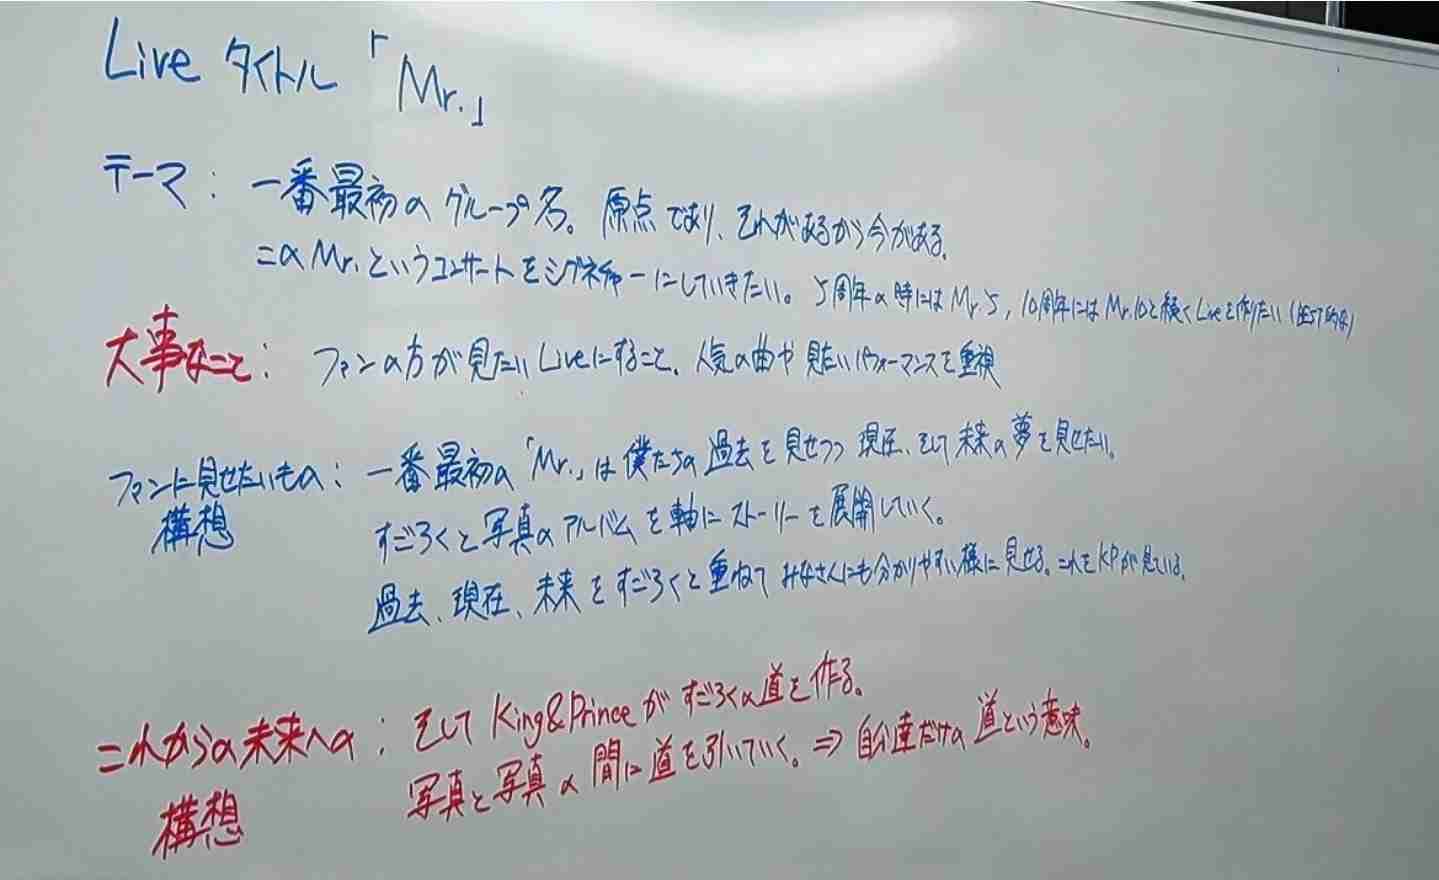 Live タイトル「Mr.」
テーマ：一番最初のグループ名。原点であり、それがあるから今がある。
このMr.というコンサートをシグネチャーにしていきたい。5周年の時にはMr.5, 10周年にはMr.10と続くLiveを作りたい
大事なこと：ファンの方が見たいLiveにすること。人気の曲や見たいパフォーマンスを重視
ファンに見せたいもの：一番最初の「Mr.」は僕たちの過去を見せつつ現在、そして未来の夢を見せたい。
構想 すごろくと写真のアルバムを軸にストーリーを展開していく。
過去、現在、未来をすごろくと重ねてみなさんにも分かりやすい様に見せる。これをKPが見ている。
これからの未来への：そしてKing&Princeがすごろくの道を作る。
構想 写真と写真の間に道を引いていく。⇒自分達だけの道という意味。